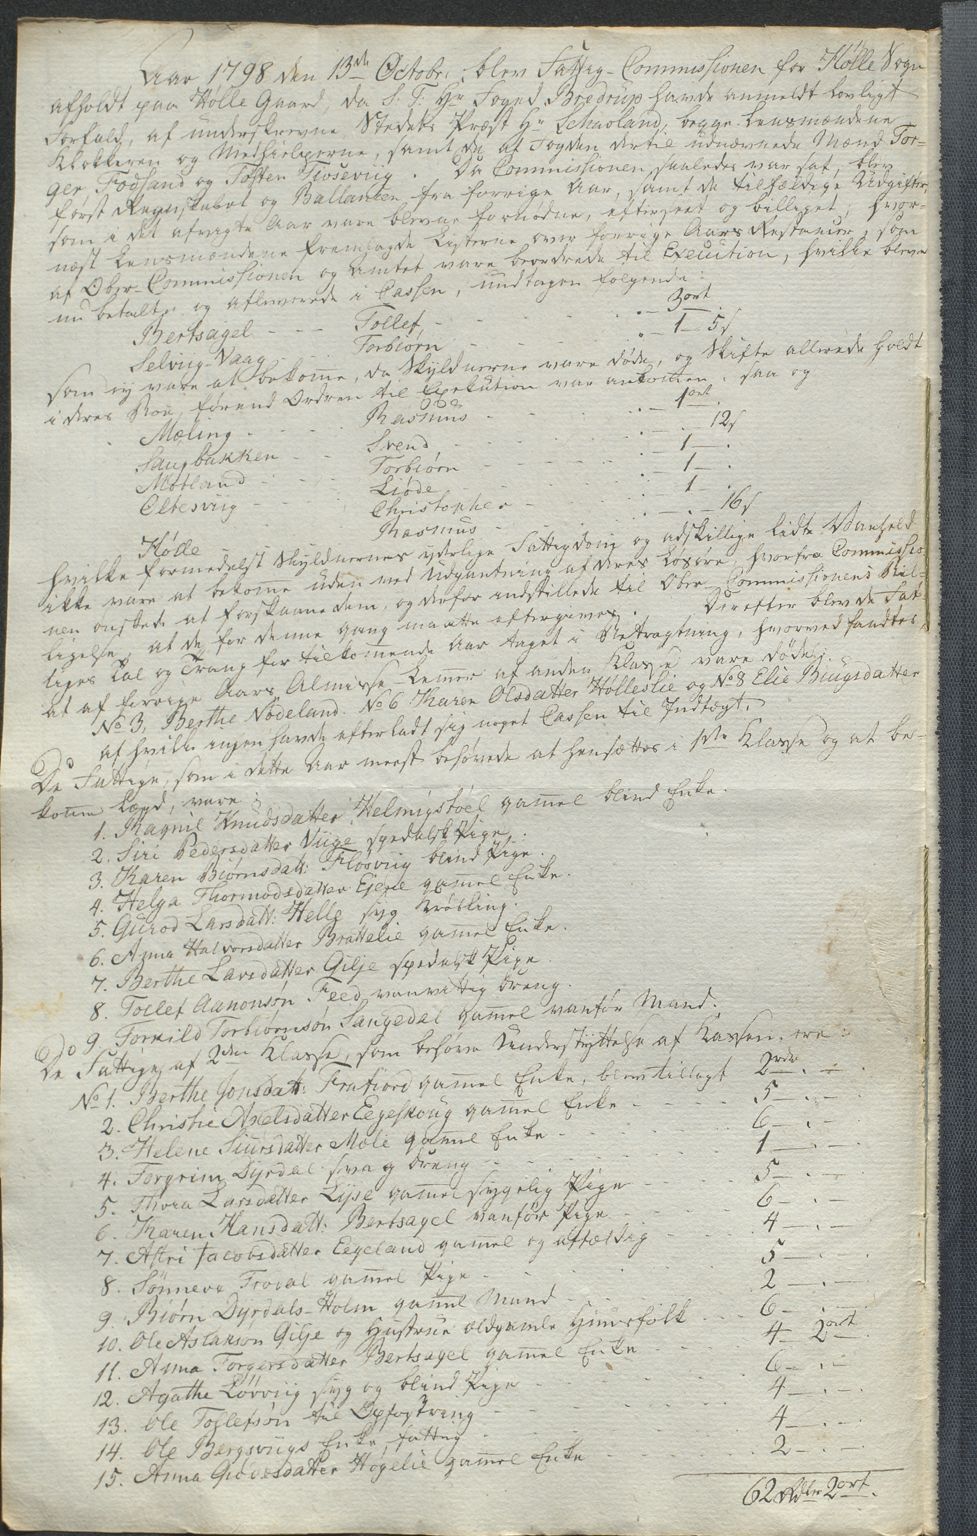 Aar 1798 den 13de Octobr. blev Fattig-Commissionen for Hölle Sogn
afholdt paa Hölle Gaard, da S. T. Hr Foged Bredrup havde anmeldt lovligt
Forfald, af underskrevne Stedets Præst Hr Schaoland, begge Lensmændene
Klokkeren og Medhielperne, samt de af Fogden dertil udnævnede Mænd Tor-
ger Fodsand og Tosten Tiosevug. Da Commissionen saaledes var sat, blev
först Regnskabet og Ballancen fra forrige Aar, samt de tilfældige Udgifter,
som i det afvigte Aar vare blevne fornödne, efterseet og billiget, hvor-
næst Lensmændene fremlagde Listerne over forrige Aars Restancer, som
af Ober-Commissionen og Amtet vare beordrede til Execution, hvilke bleve
nu betalte og afleverede i Cassen, undtagen fölgende:
Bertsagel - - - Tollef, - - - 3 ort
Selvug-Vaag - - Torbiörn - - - 1 - 5 s
som ej vare at bekome, da Skyldnerne vare döde, og Skifte allerede holdt
i deres Boe, förend Ordren til Exekution var ankommen; saa og
Mæling - - - Rasmus - - - 1 ort
Saugbakken - - Svend - - - 12 s
Motland - - - Torbiörn - - - 1 -
Oltesvug - - - Liöde - - - 1 -
Christopher - - - 1 -
Höle - - - Rasmus - - - 16 s
hvilke formedelst Skyldnernes yderlige Fattigdom og adskillige lidte Vanheld
ikke vare at bekomme uden ved Udpantning af deres Lösöre, hvorfra Commissio-
nen önskede at forskaane dem, og derfor indstillede til Ober-Commissionens Bil-
ligelse, at de for denne gang maatte eftergives. Derefter blev de Fat-
tiges Tal og Trang for tilkomende Aar taget i Betragtning, hvorved fandtes,
at af forrige Aars Almisse-Lemer af anden Klasse vare döde:
No 3, Berthe Nödeland. No 6 Karen Olsdatter Hölleslie og No 8 Elie Bingsdatter
af hvilke ingen havde efterladt sig noget Cassen til Indtægt.
De Fattige, som i dette Aar meest behövede at hensættes i 1ste Klasse og at be-
komme Lægd, vare:
1. Ragnil Knudsdatter Helmigstöel gammel blind Enke.
2. Siri Pedersdatter Viige spedalsk Pige.
3. Karen Biörnsdatt: Flösviig blind Pige.
4. Helga Thormodsdatter Ejene gammel Enke.
5. Gurod Larsdatt: Helle syg Kröbling.
6. Anna Halvorsdatter Brattelie gamel Enke.
7. Berthe Larsdatter Gilje spedalsk Pige.
8. Tollef Aanonsön Feed, vanvittig dreng.
9. Torkild Torbiörnsön Saugedal gammel vanför Mand.
De Fattige af 2den Klasse, som behöve Understyttelse af Kassen, ere:
No 1. Berthe Jonsdatt: Frafiord gammel Enke, blev tillagt 2 rdr - . -
2. Christie Axelsdatter Eegeskoug gammel Enke - - - 5 - . -
3. Helene Siursdatter Mele gammel Enke - - - 6 - . -
4. Torgrim Dyrdal svag dreng - - - 1 - . -
5. Thora Larsdatter Lyse gammel sygelig Pige - - - 5 - . -
6. Karen Hansdatt: Bertsagel vanför Pige - - - 6 - . -
7. Astri Jacobsdatter Eegeland gamel og affældig - - - 4 - . -
8. Sönneva Frodal gammel Pige - - - 5 - . -
9. Biörn Dyrdals-Holm gamml Mand - - - 2 - . -
10. Ole Aslakson Gilje og Hustrue ældgamle Huusfolk - - - 6 - . -
11. Anna Torgersdatter Bertsagel gammel Enke - - - 4 - 2 ort
12. Agathe Lövviig syg og blind Pige - - - 6 - . -
13. Ole Tollefsön til Opfostring - - - 4 - . -
14. Ole Bergsviigs Enke, fattig - - - 4 - . -
15. Anna Gudesdatter Högelie gammel Enke - - - 2 - . -
62 Rdlr 2 ort.